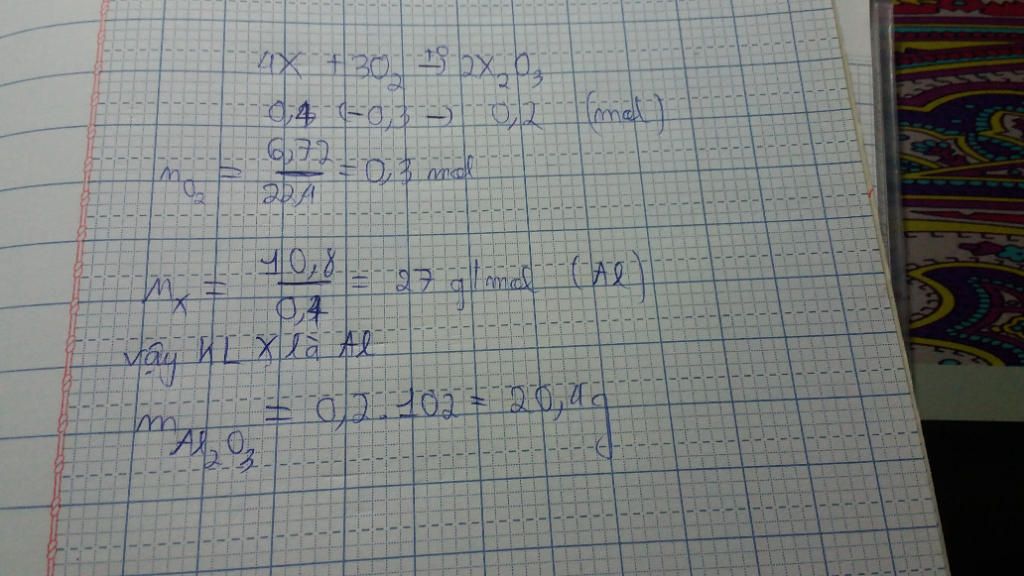 4X + 3O₂ →(t°) 2X₂O₃
0,4 ← 0,3 → 0,2 (mol)
n_O₂ = 6,72/22,4 = 0,3 mol
M_X = 10,8/0,4 = 27 g/mol (Al)
Vậy KL X là Al
m_Al₂O₃ = 0,2 . 102 = 20,4g